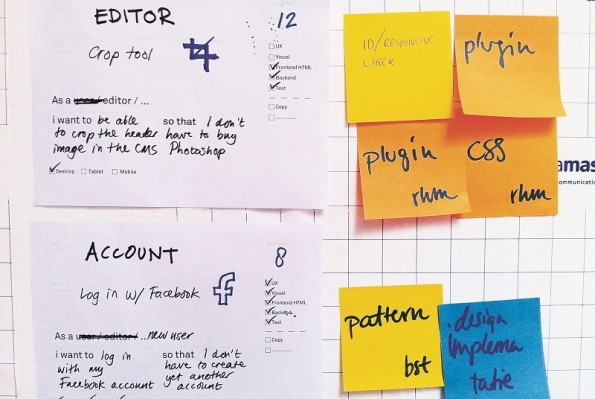 EDITOR
12
Crop tool
UX
Visual
Frontend HTML
Backend
Test
Copy
As a user/editor / ...
i want to be able so that I don't
to crop the header have to buy
image in the CMS Photoshop
Desktop Tablet Mobile
ID/RESPONSIVE
CHECK
plugin
plugin
rhm
CSS
rhm
amas
ommunicatio
ACCOUNT
8
Log in w/ Facebook
UX
Visual
Frontend HTML
Backend
Test
Copy
As a user/editor/ ...new user
i want to log in so that I don't
with my have to create
Facebook account yet another
account
pattern
bst
.design
Implemen
tatie